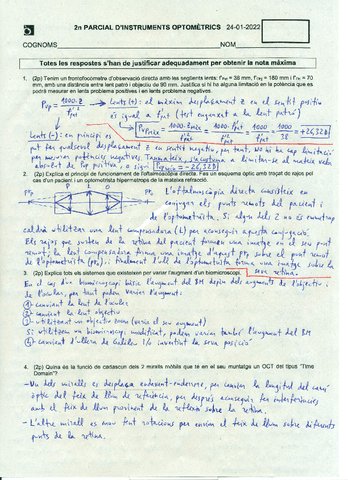 2n PARCIAL D'INSTRUMENTS OPTOMÈTRICS 24-01-2022
COGNOMS NOM
Totes les respostes s'han de justificar adequadament per obtenir la nota màxima
1. (2p) Tenim un frontofocòmetre d'observació directa amb les següents lents: f'col = 38 mm, f'obj = 180 mm i f'oc = 70
mm, amb una distància entre lent patró i objectiu de 90 mm. Justifica si hi ha alguna limitació en la potència que es
podrà mesurar en lents problema positives i en lents problema negatives.
lents (+): el màxim desplaçament z en el sentit positiu
és igual a f'col (test enganxat a la lent patró)
lents (-): en principi es
pot fer qualsevol desplaçament z en sentit negatiu, per tant, no hi ha cap limitació
per mesurar potències negatives.
2. (2p) Explica el principi de funcionament de l'oftalmoscòpia directa. Fes un esquema òptic amb traçat de rajos pel
cas d'un pacient i un optometrista hipermètrops de la mateixa refracció.
L'oftalmoscòpia directa consisteix en
conjugar els punts remots del pacient i
de l'optometrista. Si algun dels 2 no és emmetrop
caldrà utilitzar una lent compensadora (L) per aconseguir aquesta conjugació.
Els rajos que surten de la retina del pacient formen una imatge en el seu punt
remot; la lent compensadora forma una imatge d'aquest
de l'optometrista finalment l'ull de l'optometrista forma una imatge sobre la
seva retina.
3. (2p) Explica tots els sistemes que existeixen per variar l'augment d'un biomicroscopi.
En el cas d'un biomicroscopi bàsic l'augment del BM depèn dels augments de l'objectiu i
de l'ocular, per tant podem variar l'augment:
① canviant la lent de l'ocular
② canviant la lent objectiu
③ utilitzant un objectiu zoom (varia el seu augment)
Si utilitzem un biomicroscopi modificat, podem variar també l'augment del BM
④ canviant d'ullera de Galileu i/o invertint la seva posició
4. (2p) Quina és la funció de cadascun dels 2 miralls mòbils que té en el seu muntatge un OCT del tipus "Time
Domain"?
- Un dels miralls es desplaça endavant-endarrere, per canviar la longitud del camí
òptic del feix de llum de referència, per després aconseguir fer interferències
amb el feix de llum provinent de la reflexió sobre la retina.
- L'altre mirall es mou fent rotacions per enviar el feix de llum sobre diferents
punts de la retina.